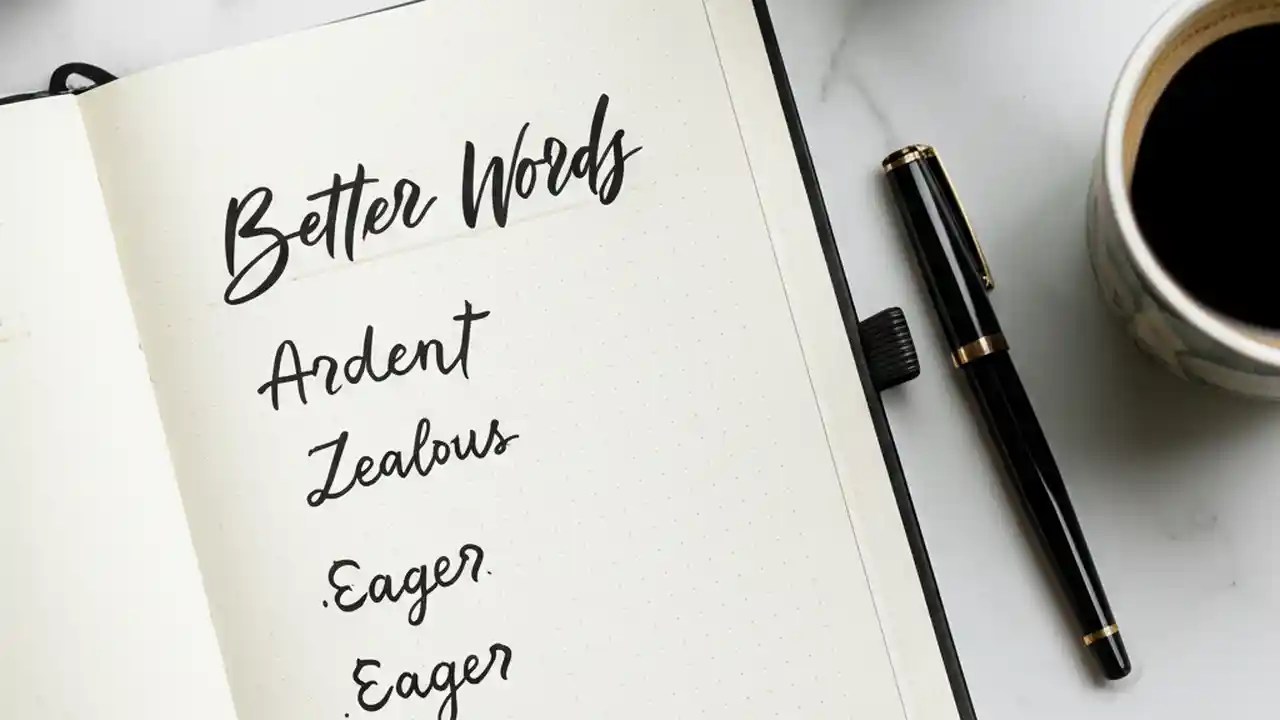 Better Words
Ardent
Zealous
Eager
Eager